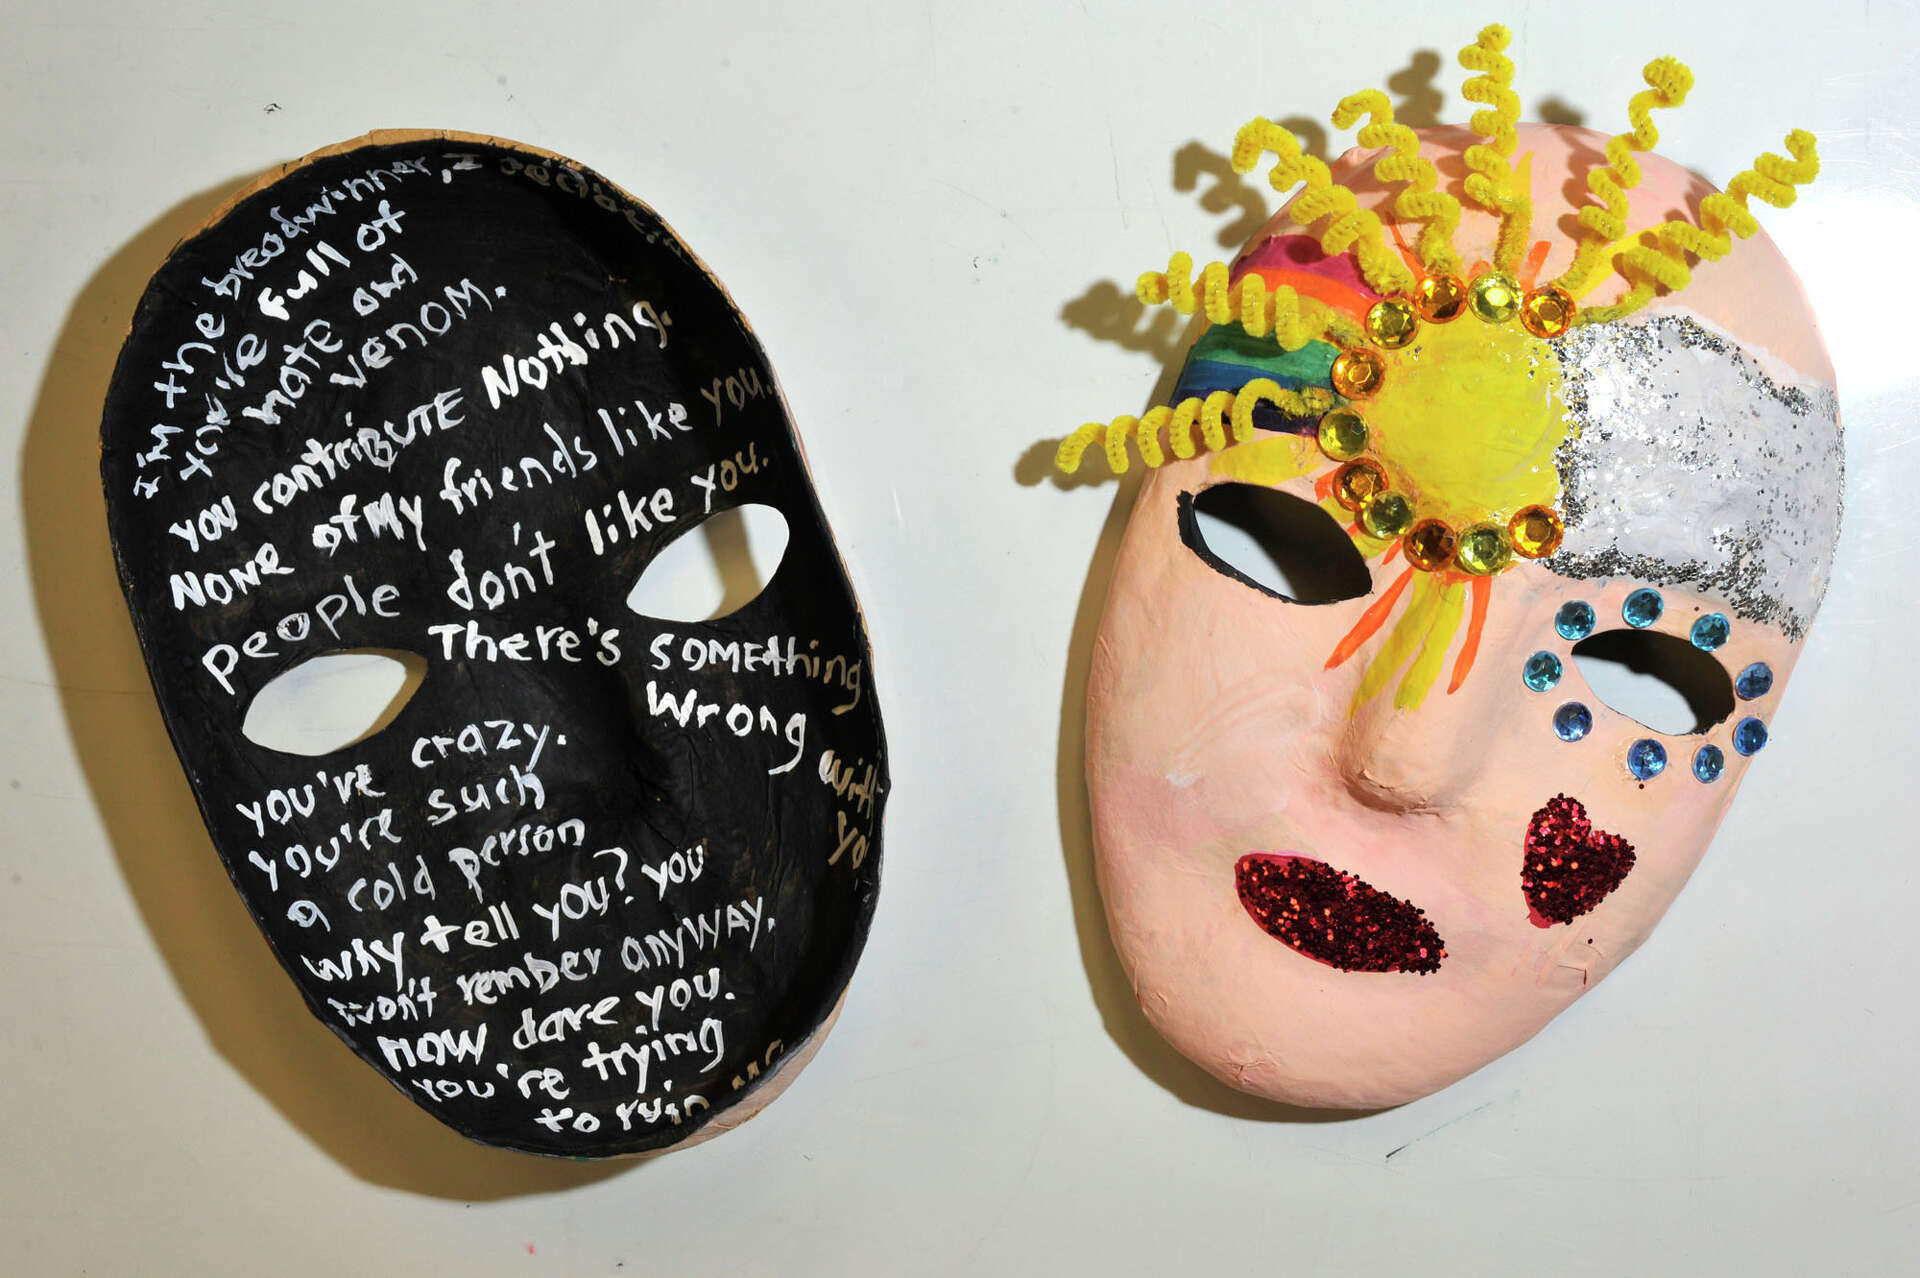 I'm the breadwinner, I
You're full of
Hate and
Venom.
You contribute Nothing.
None of My friends like you.
people don't like you.
There's Something
Wrong
with
yo
you're crazy.
you're such
a cold person
Why tell you? you
won't rember anyway.
How dare you.
You're trying
to ruin me